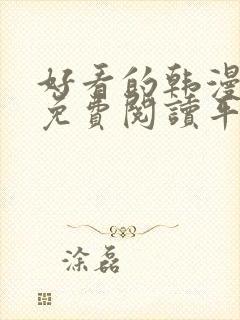 好看的韩漫
免費閱讀年
涂磊